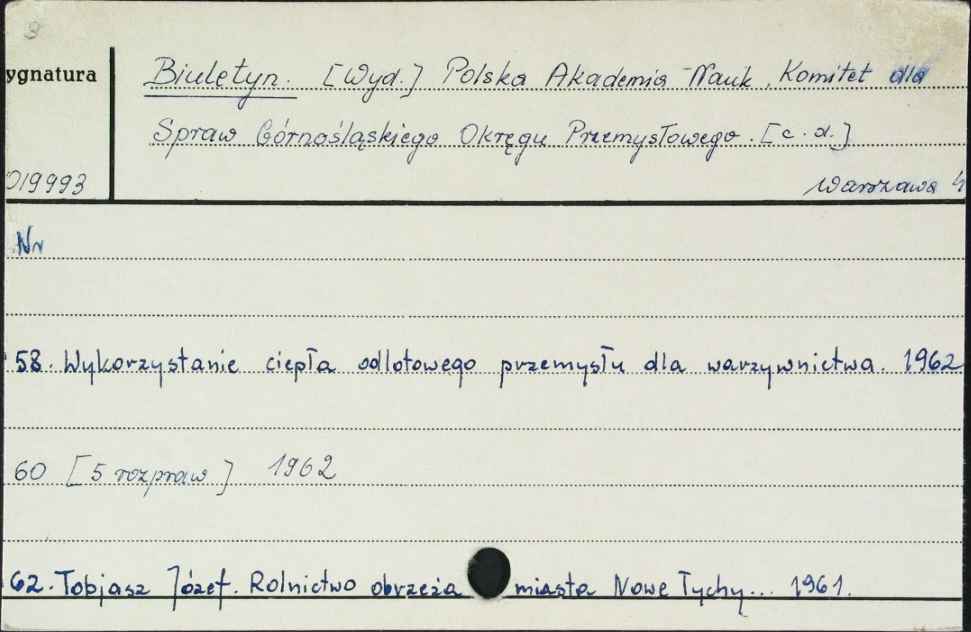 9
ygnatura
Biuletyn. [Wyd.] Polska Akademia Nauk, Komitet dla
Spraw Górnośląskiego Okręgu Przemysłowego. [c.d.]
019993
Warszawa
Nr
58. Wykorzystanie ciepła odlotowego przemysłu dla warzywnictwa. 1962
60 [5 rozpraw] 1962
62. Tobjasz Józef. Rolnictwo obrzeża miasta Nowe Tychy... 1961.